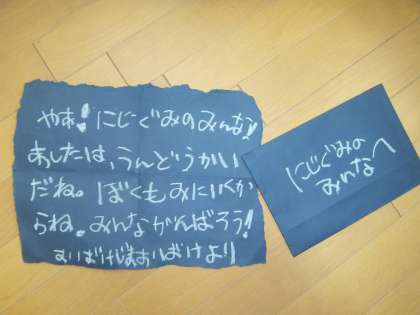 やぁ!にじぐみのみんな!
あしたは、うんどうかい
だね。ぼくもみにいくか
らね。みんながんばろう!
おばけより
にじぐみの
みんなへ